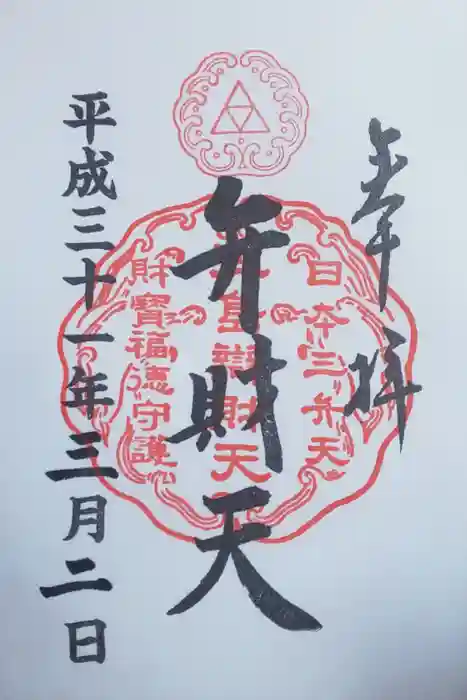 奉拝
日本三弁天
弁財天
江島辨財天
財寶福徳守護
平成三十一年三月二日